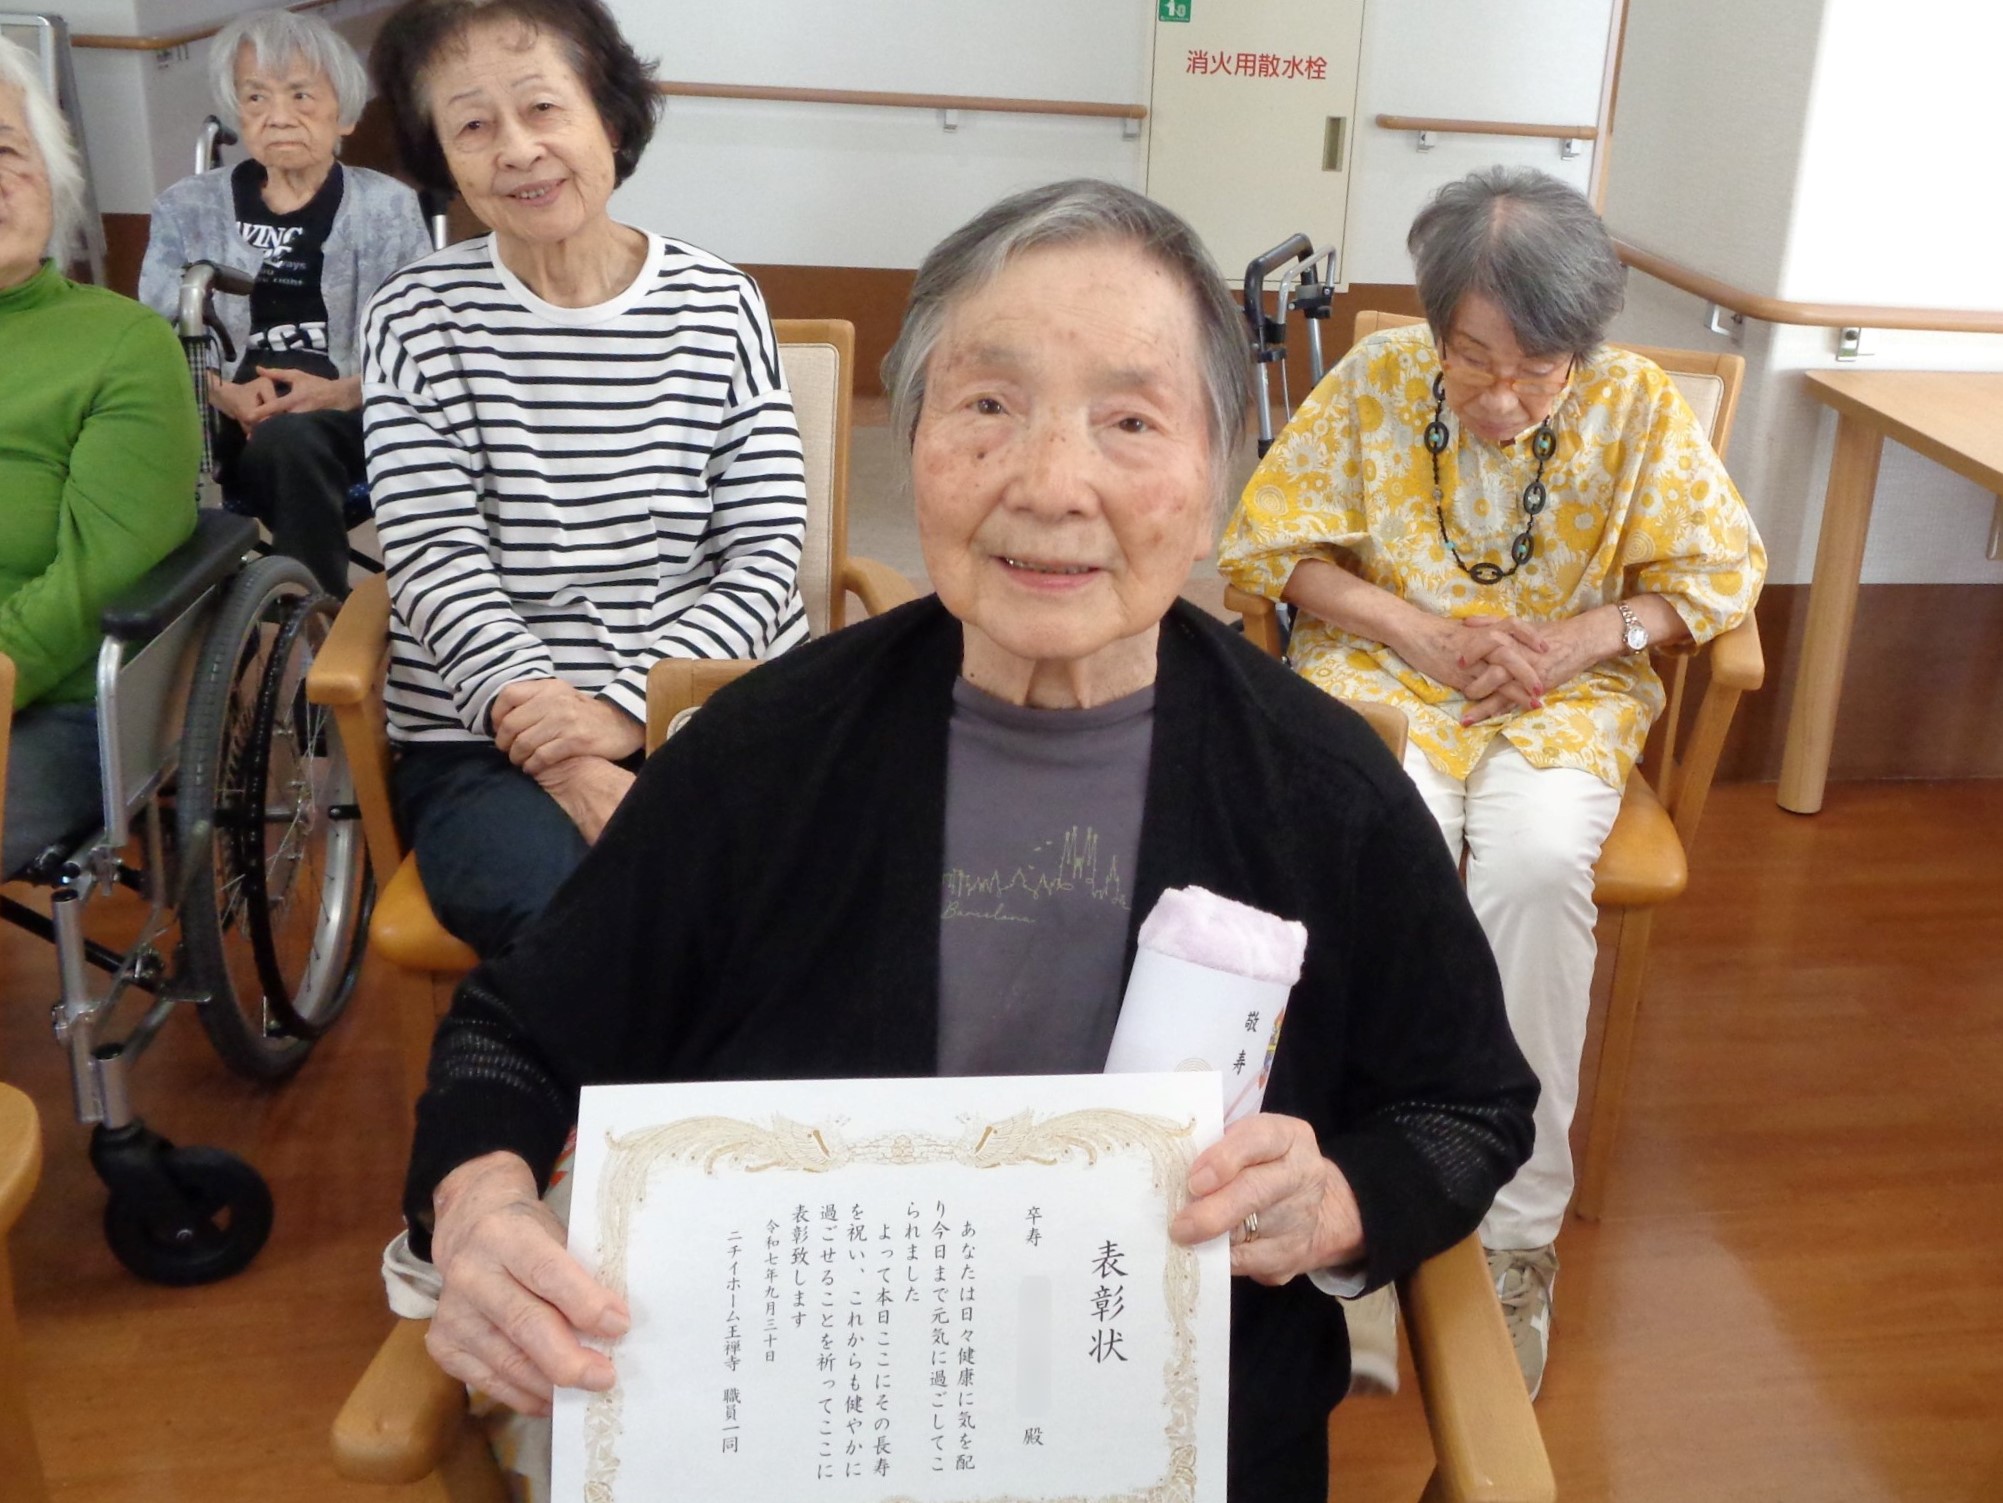 消火用散水栓
Barcelona
敬寿
表彰状
卒寿 殿
あなたは日々健康に気を配
り今日まで元気に過ごしてこ
られました
よって本日ここにその長寿
を祝い、これからも健やかに
過ごせることを祈ってここに
表彰致します
令和七年九月三十日
ニチイホーム王禅寺 職員一同